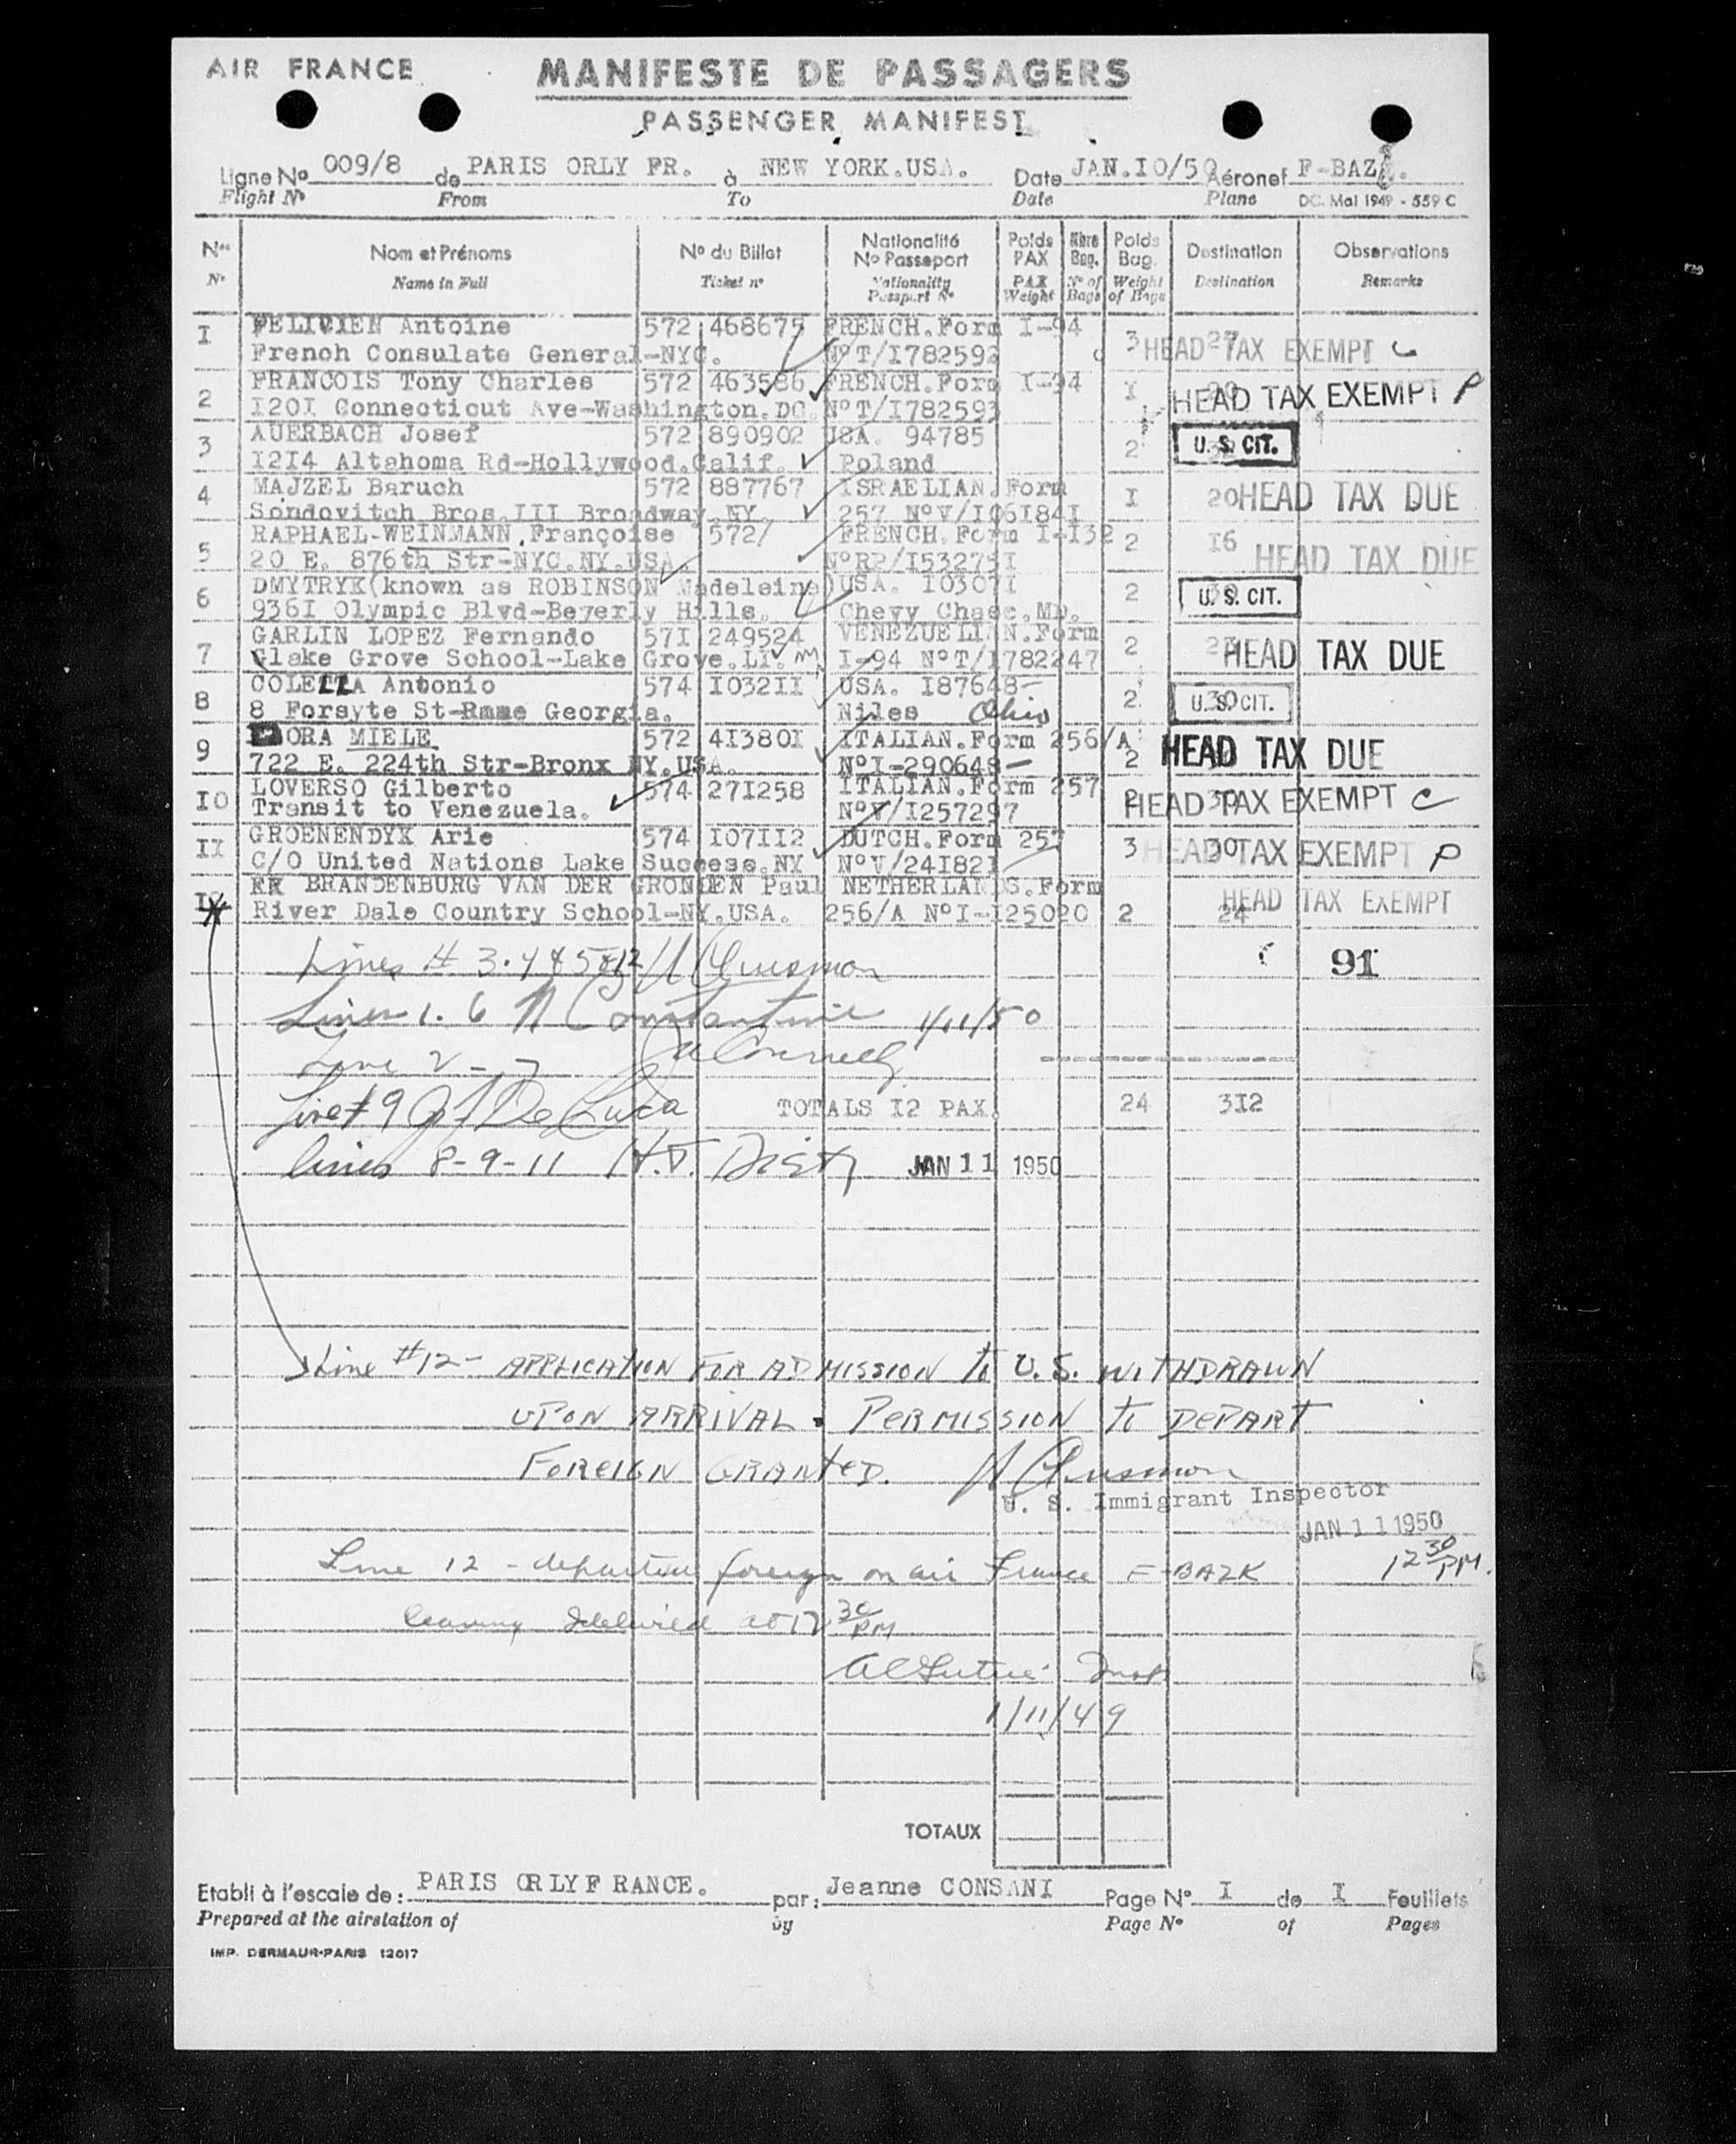 AIR FRANCE
MANIFESTE DE PASSAGERS
PASSENGER MANIFEST
Ligne No 009/8 de PARIS ORLY FR. à NEW YORK.USA. Date JAN.I0/50 Aéronef F-BAZ
Flight No From To Date Plane DC. Mai 1949 - 559 C
Nos Nom et Prénoms No du Billet Nationalité No Passeport Poids PAX Nbre Bag. Poids Bag. Destination Observations
No Name in Full Ticket no Nationality Passport No PAX Weight No of Bags Weight of Bags Destination Remarks
I FELICIEN Antoine 572 468675 FRENCH.Form I-94
French Consulate General-NYC. NoT/I782592 3 27 HEAD TAX EXEMPT
2 FRANCOIS Tony Charles 572 463586 FRENCH.Form I-94 I HEAD TAX EXEMPT P
I20I Connecticut Ave-Washington.DC. NoT/I782593
3 AUERBACH Josef 572 890902 USA. 94785 2 U. S. CIT.
I2I4 Altahoma Rd-Hollywood.Calif. Poland
4 MAJZEL Baruch 572 887767 ISRAELIAN.Form I 20 HEAD TAX DUE
Sondovitch Bros.III Broadway.NY. 257 NoV/I06I84I
5 RAPHAEL-WEINMANN.Françoise 572/ FRENCH.Form I-I32 2 I6 HEAD TAX DUE
20 E. 876th Str-NYC.NY.USA. NoRP/I53275I
6 DMYTRYK(known as ROBINSON Madeleine) USA. I0307I 2 U. S. CIT.
936I Olympic Blvd-Beverly Hills. Chevy Chase.MD.
7 GARLIN LOPEZ Fernando 57I 249524 VENEZUELIAN.Form 2 HEAD TAX DUE
Glake Grove School-Lake Grove.LI. I-94 NoT/I782247
8 COLETTA Antonio 574 I032II USA. I87648 2 30 U. S. CIT.
8 Forsyte St-Rmme Georgia. Niles Ohio
9 DORA MIELE 572 4I380I ITALIAN.Form 256/A 2 HEAD TAX DUE
722 E. 224th Str-Bronx NY.USA. NoI-290648
I0 LOVERSO Gilberto 574 27I258 ITALIAN.Form 257 2 30 HEAD TAX EXEMPT C
Transit to Venezuela. NoV/I257297
II GROENENDYK Arie 574 I07II2 DUTCH.Form 257 3 30 HEAD TAX EXEMPT P
C/O United Nations Lake Success.NY NoV/24I82I
I2 BRANDENBURG VAN DER GRONDEN Paul NETHERLANDS.Form HEAD TAX EXEMPT
River Dale Country School-NY.USA. 256/A NoI-I25020 2 24
Lines # 3.4 & 5 & 12
91
Lines 1. 6 N Constantine 1/11/50
Line 2 - 7
Line #9 De Luca TOTALS I2 PAX. 24 3I2
lines 8-9-11 JAN 11 1950
Line #12 - APPLICATION FOR ADMISSION to U.S. WITHDRAWN
UPON ARRIVAL. PERMISSION to DEPART
FOREIGN GRANTED.
U. S. Immigrant Inspector
JAN 1 1 1950
12 30 PM.
Line 12 - departure foreign on air France F-BAZK
leaving Idlewild at 12 30 PM
Insp.
1/11/49
TOTAUX
Etabli à l'escale de : PARIS ORLY FRANCE. par : Jeanne CONSANI Page No I de I Feuillets
Prepared at the airstation of by Page No of Pages
IMP. DERMAUR-PARIS 12017